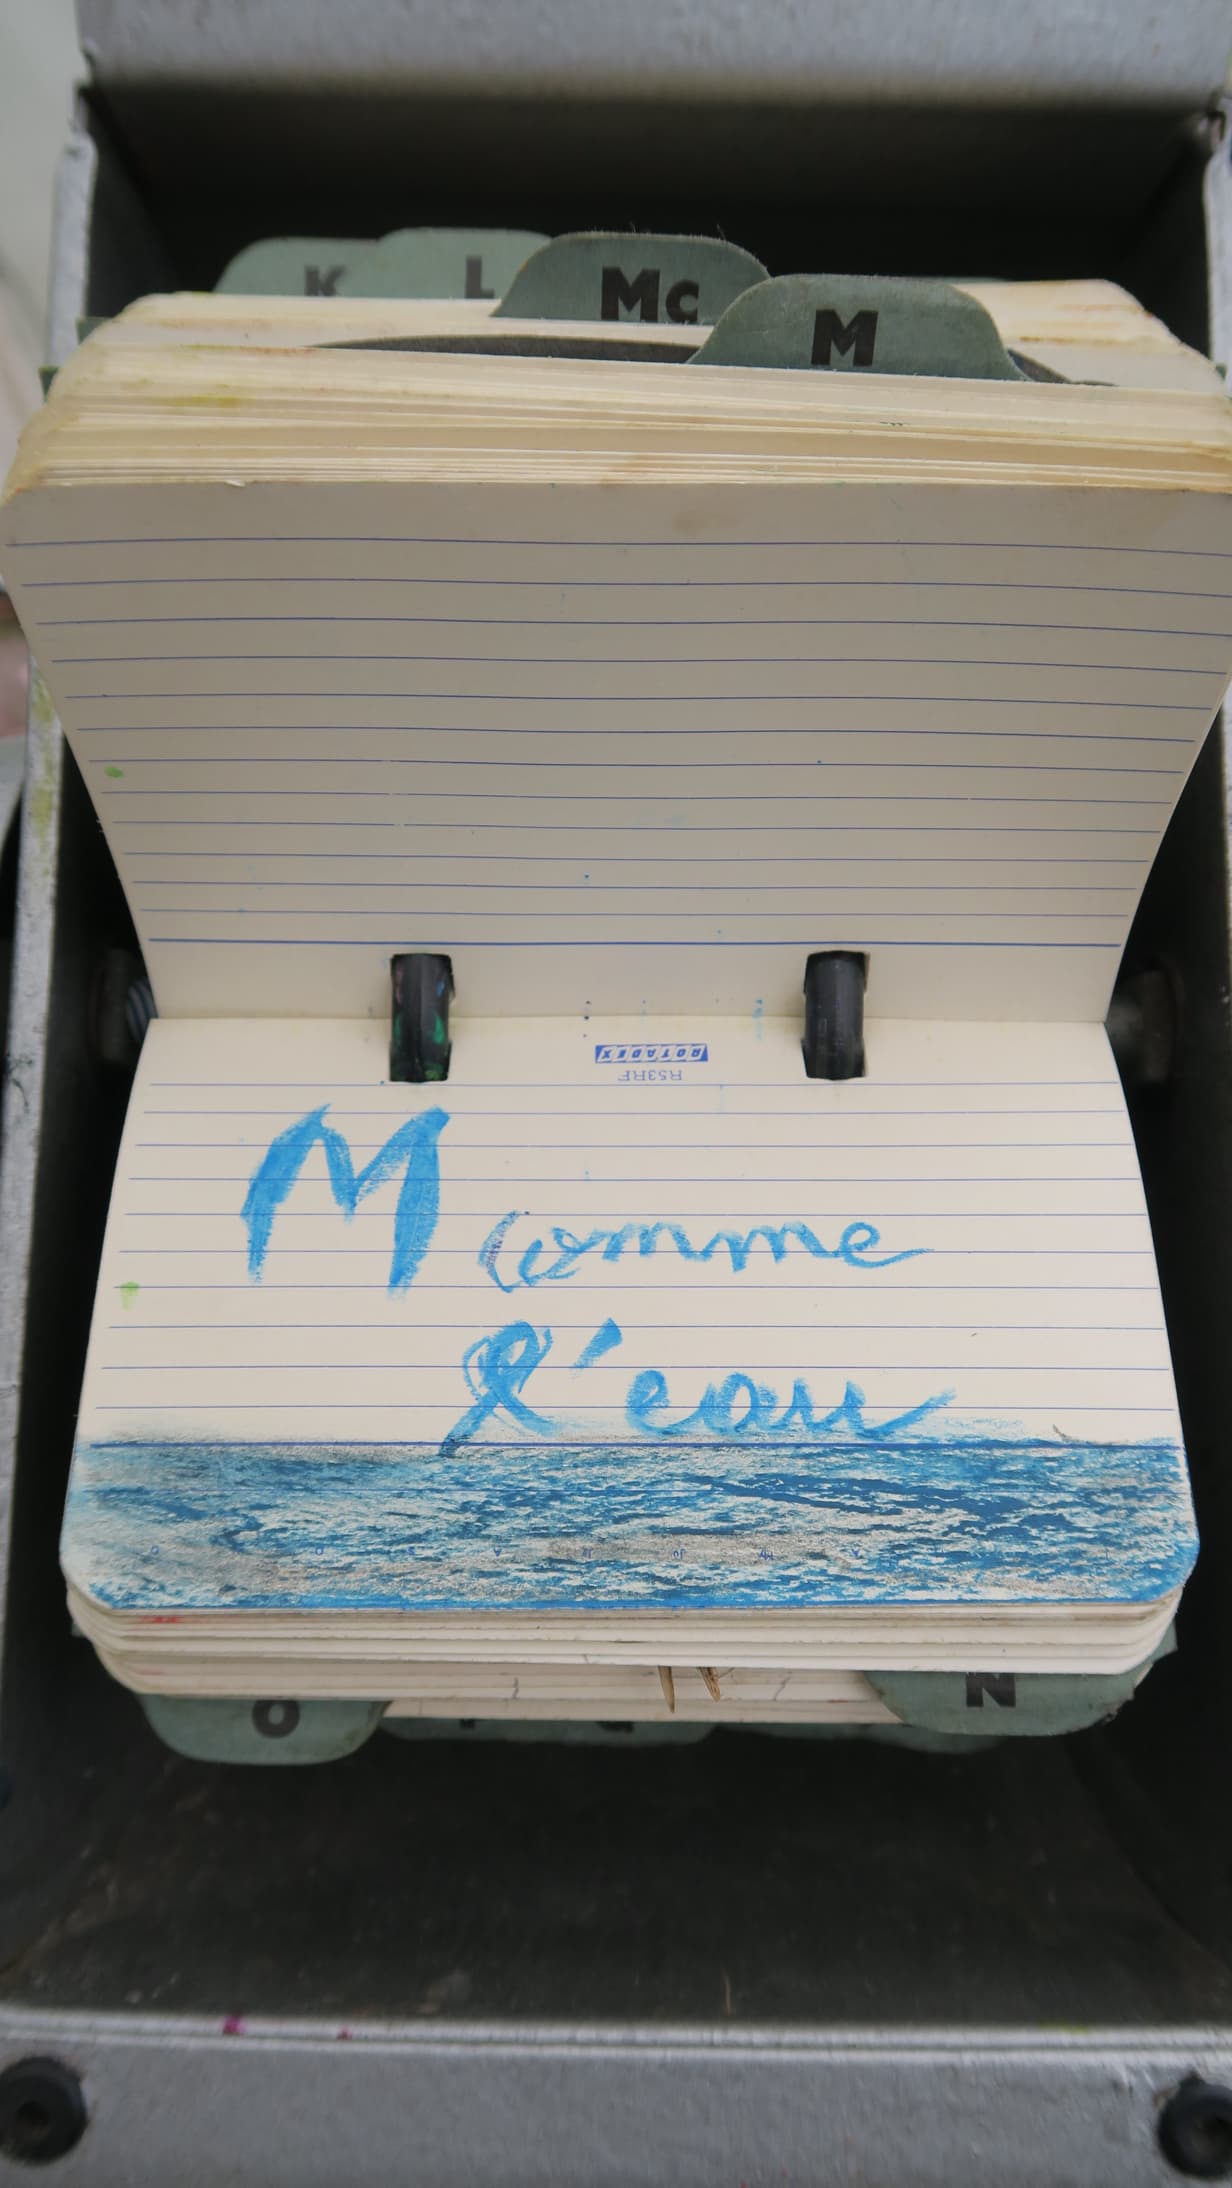 K L Mc M
ROTADEX
R53RF
M comme
l'eau
O
N